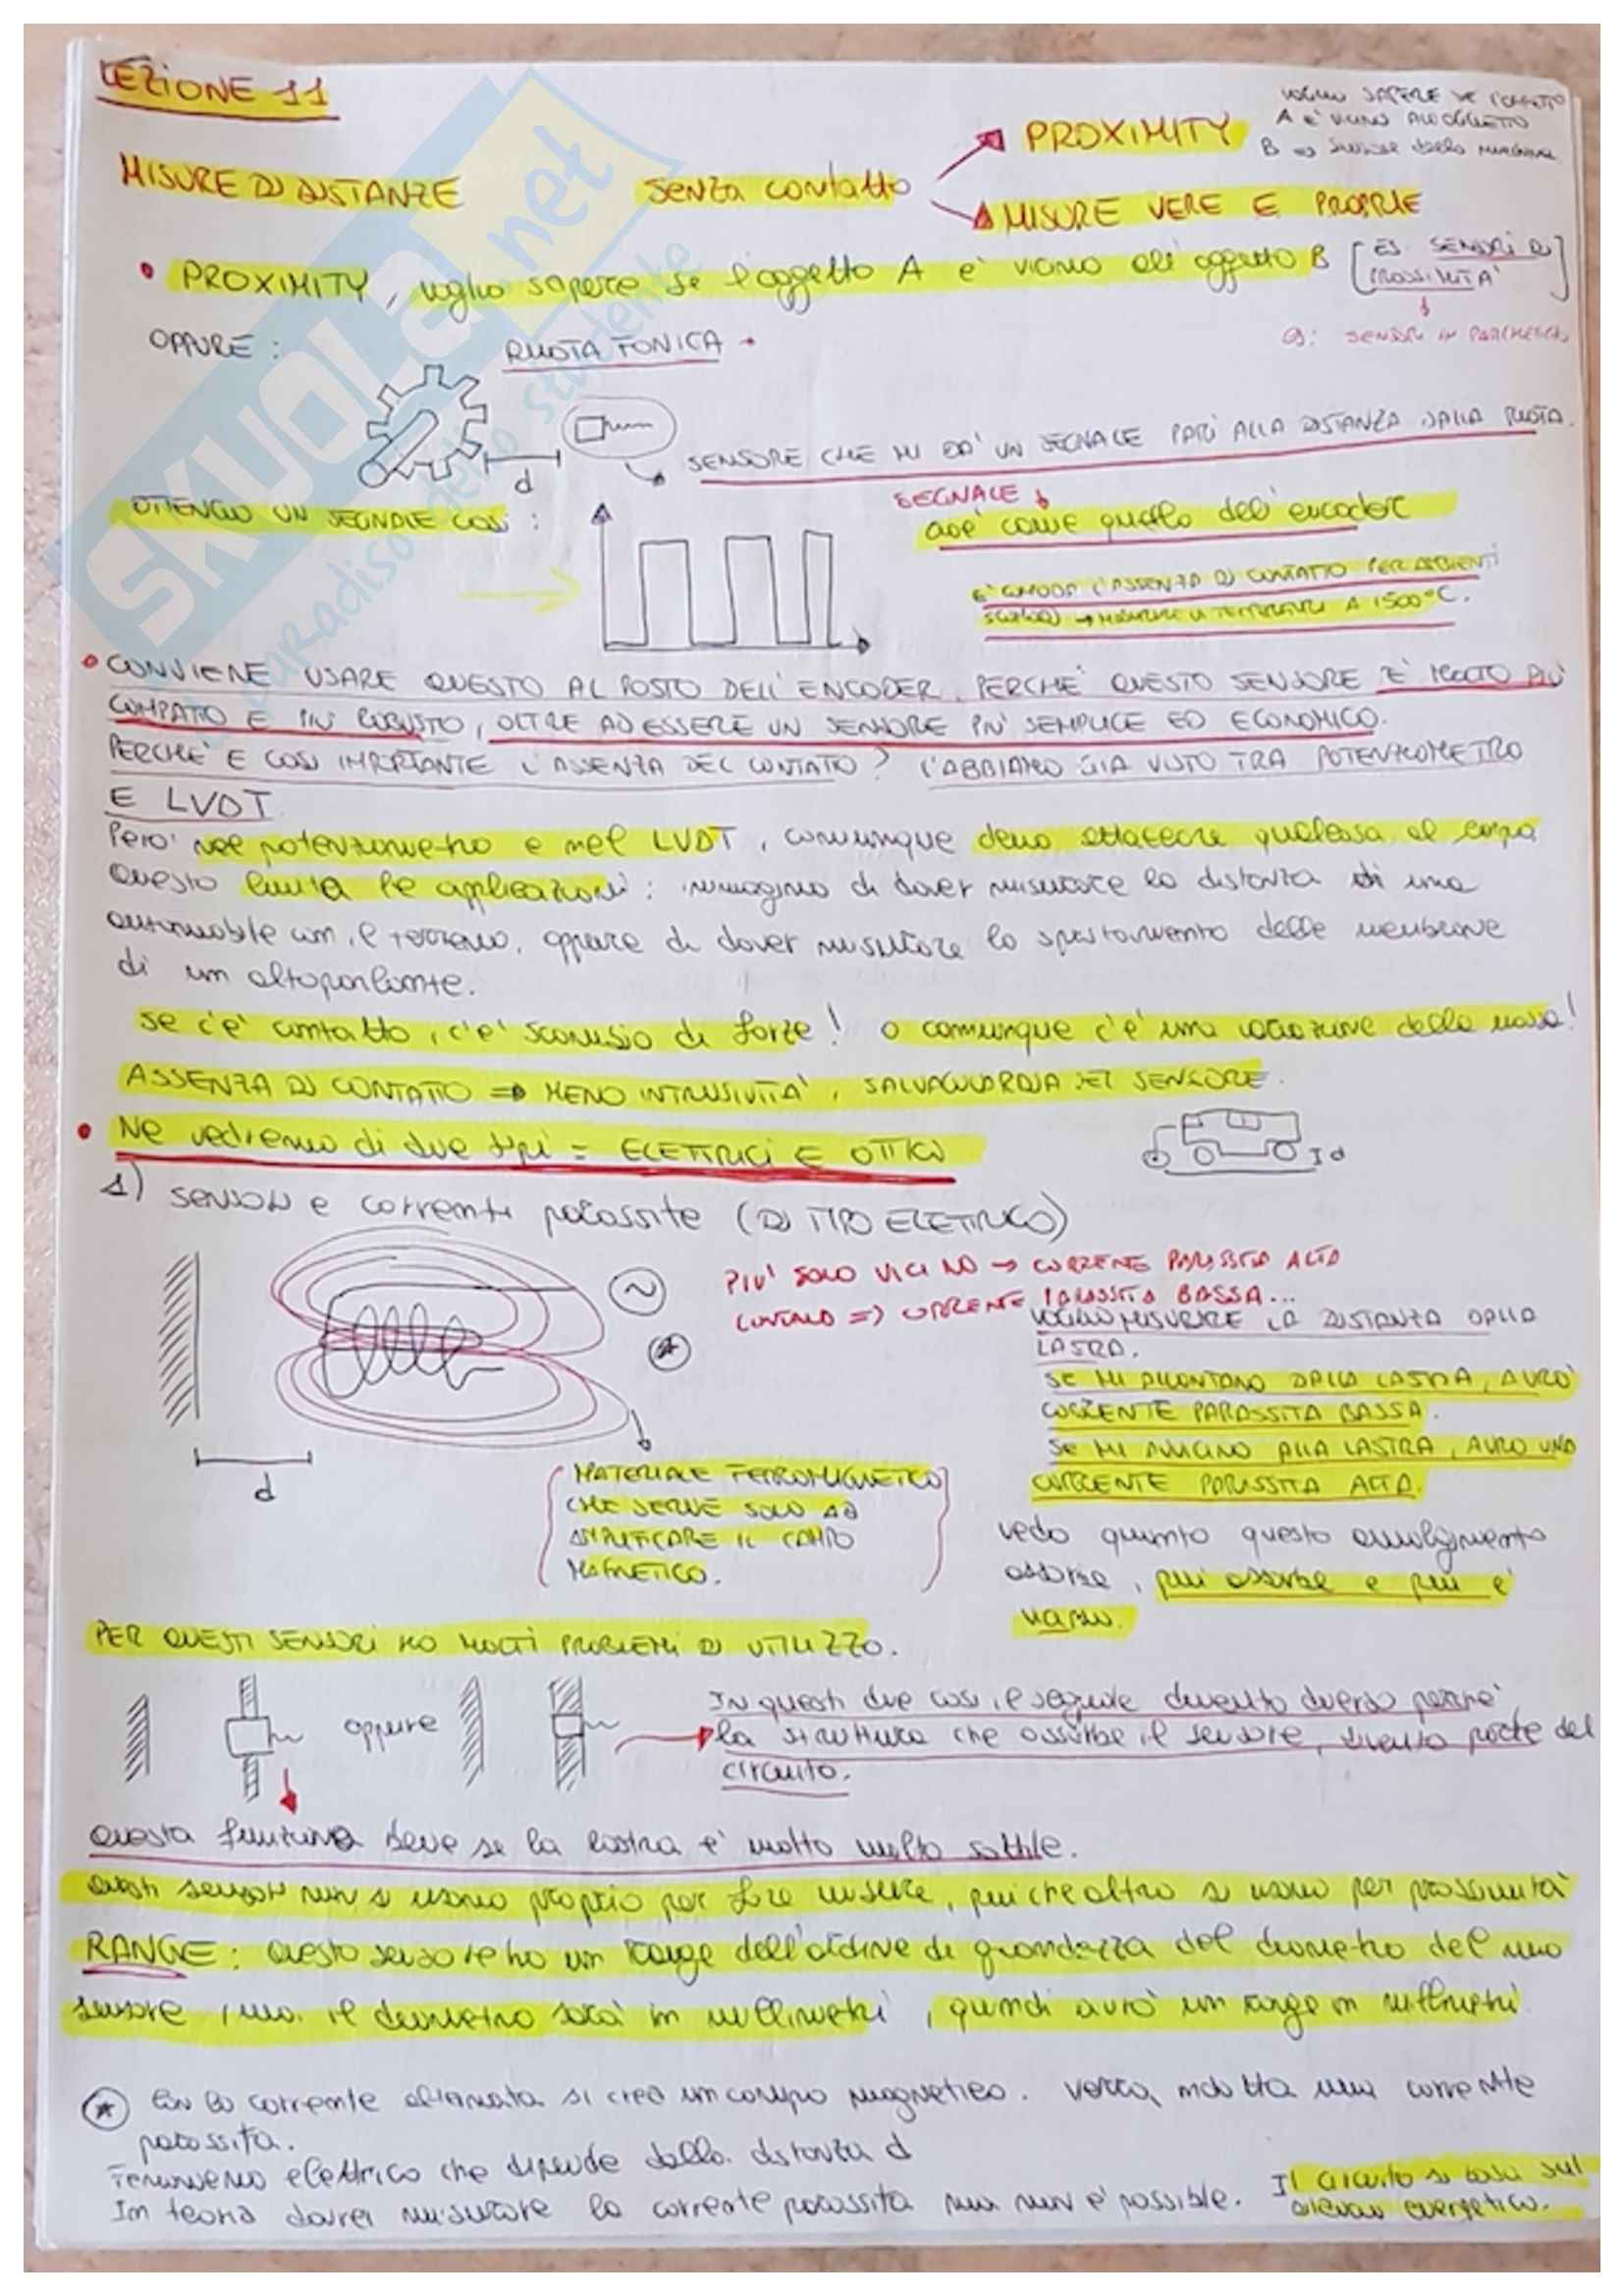 LEZIONE 11
VOGLIO SAPERE SE L'OGGETTO
A E' VICINO ALL'OGGETTO
B => dalla macchina
MISURE DI DISTANZE senza contatto PROXIMITY
MISURE VERE E PROPRIE
• PROXIMITY, voglio sapere se l'oggetto A e' vicino all'oggetto B [ES. SENSORI DI
PROSSIMITA']
OPPURE: RUOTA FONICA
SENSORI IN PARCHEGGIO
SENSORE CHE MI DA' UN SEGNALE PARI ALLA DISTANZA DALLA RUOTA.
d
OTTENGO UN SEGNALE COSI:
SEGNALE
cioe' come quello dell'encoder
E' COMODA L'ASSENZA DI CONTATTO PER AMBIENTI
SCOMODI → MISURARE LA TEMPERATURA A 1500°C.
• CONVIENE USARE QUESTO AL POSTO DELL'ENCODER, PERCHE' QUESTO SENSORE E' MOLTO PIU'
COMPATTO E PIU' ROBUSTO, OLTRE AD ESSERE UN SENSORE PIU' SEMPLICE ED ECONOMICO.
PERCHE' E COSI IMPORTANTE L'ASSENZA DEL CONTATTO? L'ABBIAMO GIA VISTO TRA POTENZIOMETRO
E LVDT
Pero' nel potenziometro e nel LVDT, comunque devo attaccare qualcosa al corpo
Questo limita le applicazioni: immagino di dover misurare la distanza di una
automobile con il terreno, oppure di dover misurare lo spostamento delle membrane
di un altoparlante.
se c'e' contatto, c'e' scambio di forze! o comunque c'e' una variazione della massa!
ASSENZA DI CONTATTO => MENO INTRUSIVITA', SALVAGUARDIA DEL SENSORE.
• Ne vedremo di due tipi = ELETTRICI E OTTICI
d
1) sensori a correnti parassite (DI TIPO ELETTRICO)
PIU' SONO VICINO → CORRENTE PARASSITA ALTA
LONTANO => CORRENTE PARASSITA BASSA...
VOGLIO MISURARE LA DISTANZA DALLA
LASTRA.
SE MI ALLONTANO DALLA LASTRA, AVRO'
CORRENTE PARASSITA BASSA.
SE MI AVVICINO ALLA LASTRA, AVRO UNA
CORRENTE PARASSITA ALTA.
d
MATERIALE FERROMAGNETICO
CHE SERVE SOLO AD
AMPLIFICARE IL CAMPO
MAGNETICO.
vedo quanto questo avvolgimento
assorbe, piu assorbe e piu e'
vicino.
PER QUESTI SENSORI HO MOLTI PROBLEMI DI UTILIZZO.
oppure
In questi due casi il segnale diventa diverso perche'
la struttura che assorbe il sensore, diventa parte del
circuito.
Questa funziona bene se la lastra e' molto molto sottile.
Questi sensori non si usano proprio per fare misure, piu che altro si usano per prossimita'
RANGE: questo sensore ha un range dell'ordine di grandezza del diametro del mio
sensore, ma il diametro sara' in millimetri, quindi avro' un range in millimetri.
* Con la corrente alternata si crea un campo magnetico. Verra, indotta una corrente
parassita.
Fenomeno elettrico che dipende dalla distanza d
In teoria dovrei misurare la corrente parassita ma non e' possibile.
Il circuito si basa sul
bilancio energetico.
SKUOLA.net
il paradiso dello studente